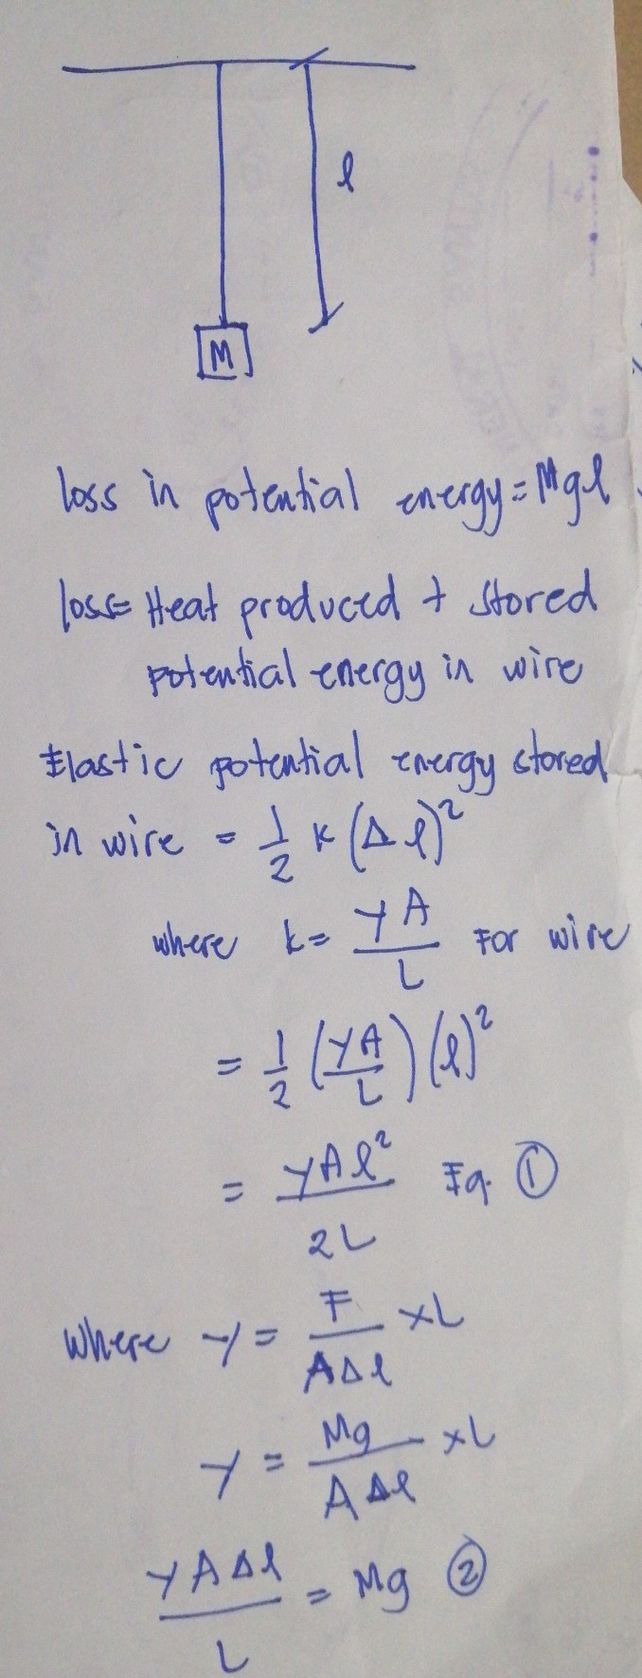 l
M
loss in potential energy = Mgl
loss = Heat produced + stored
potential energy in wire
Elastic potential energy stored
in wire = 1/2 k (Δl)²
where k = YA/L For wire
= 1/2 (YA/L) (l)²
= YAl²/2L Eq. ①
where Y = F/AΔl × L
Y = Mg/AΔl × L
YAΔl/L = Mg ②